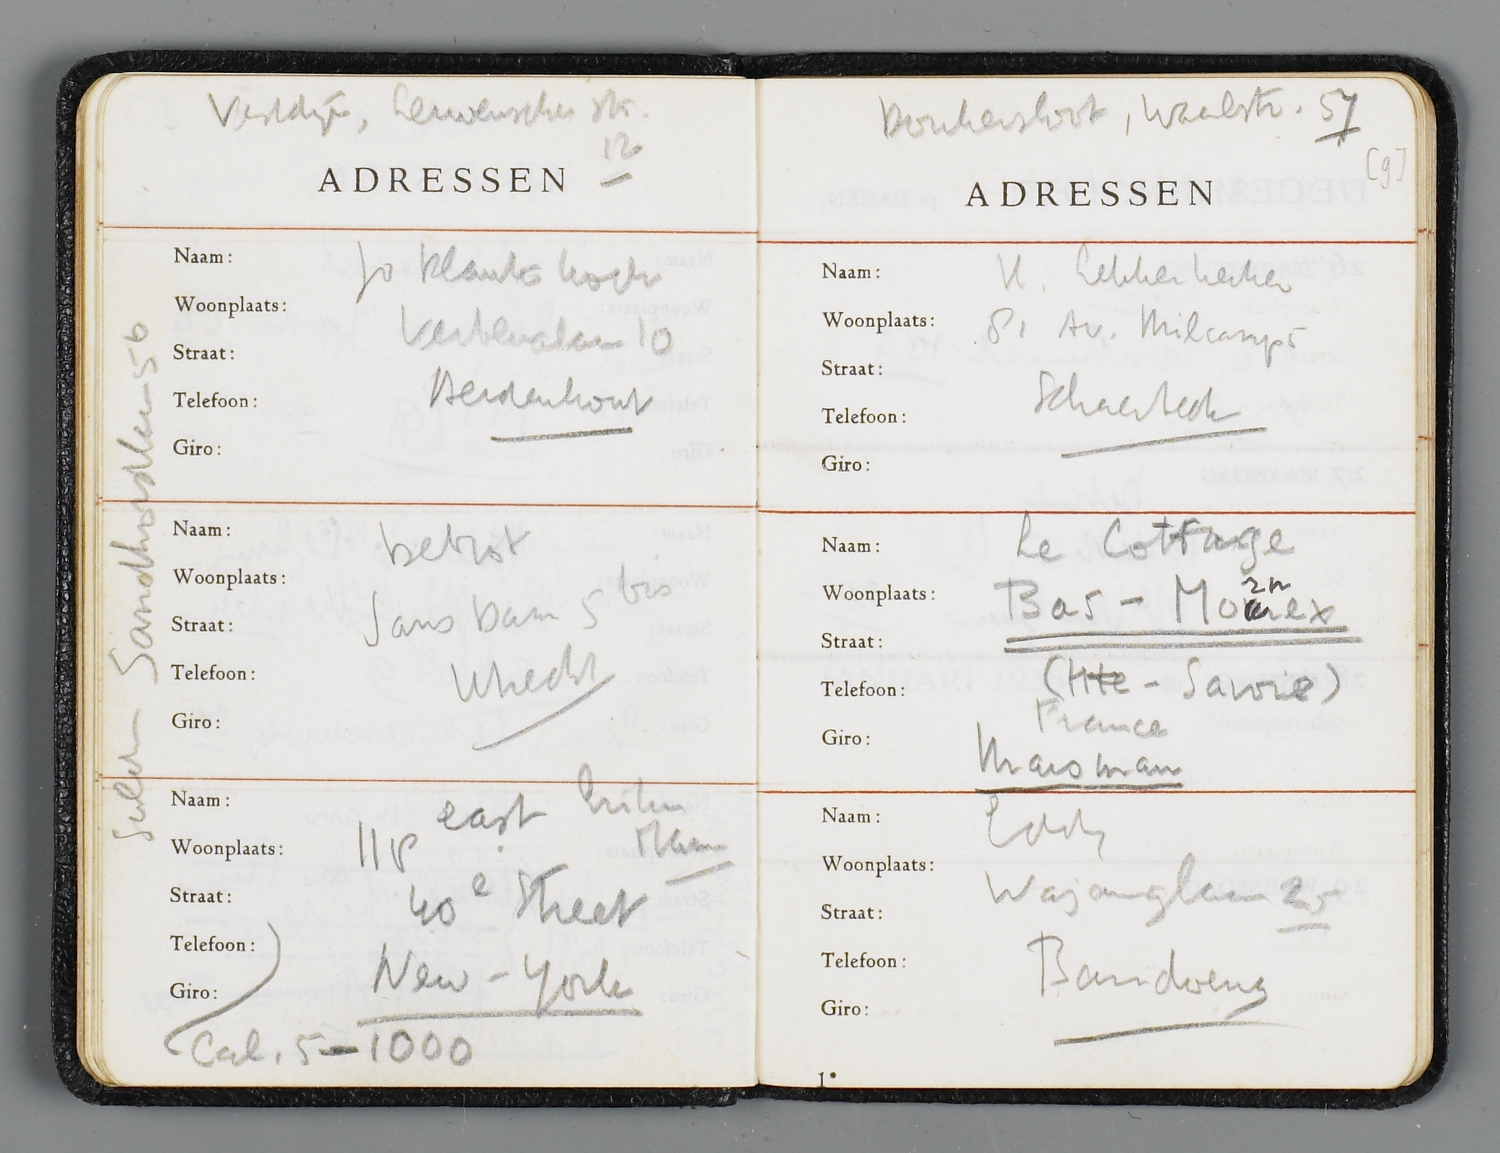 Verdijk, Leuvensche str.
12
ADRESSEN
Naam:
Jo Planten-Koch
Woonplaats:
10
Straat:
Aerdenhout
Telefoon:
Giro:
Naam:
Debrot
Woonplaats:
Jans Dam 5 bis
Straat:
Telefoon:
Utrecht
Giro:
Naam:
east
Woonplaats:
118
Straat:
40e Street
Telefoon:
Giro:
New-York
Cal. 5-1000
56
Donkersloot, Waalstr. 57
[9]
ADRESSEN
Naam:
H.
Woonplaats:
81 Av. Milcamps
Straat:
Telefoon:
Schaerbeek
Giro:
Naam:
Le Cottage
Woonplaats:
Bas-Mornex
Straat:
Telefoon:
(Hte-Savoie)
France
Giro:
Marsman
Naam:
Eddy
Woonplaats:
Wajanglaan
Straat:
Telefoon:
Bandoeng
Giro:
1*